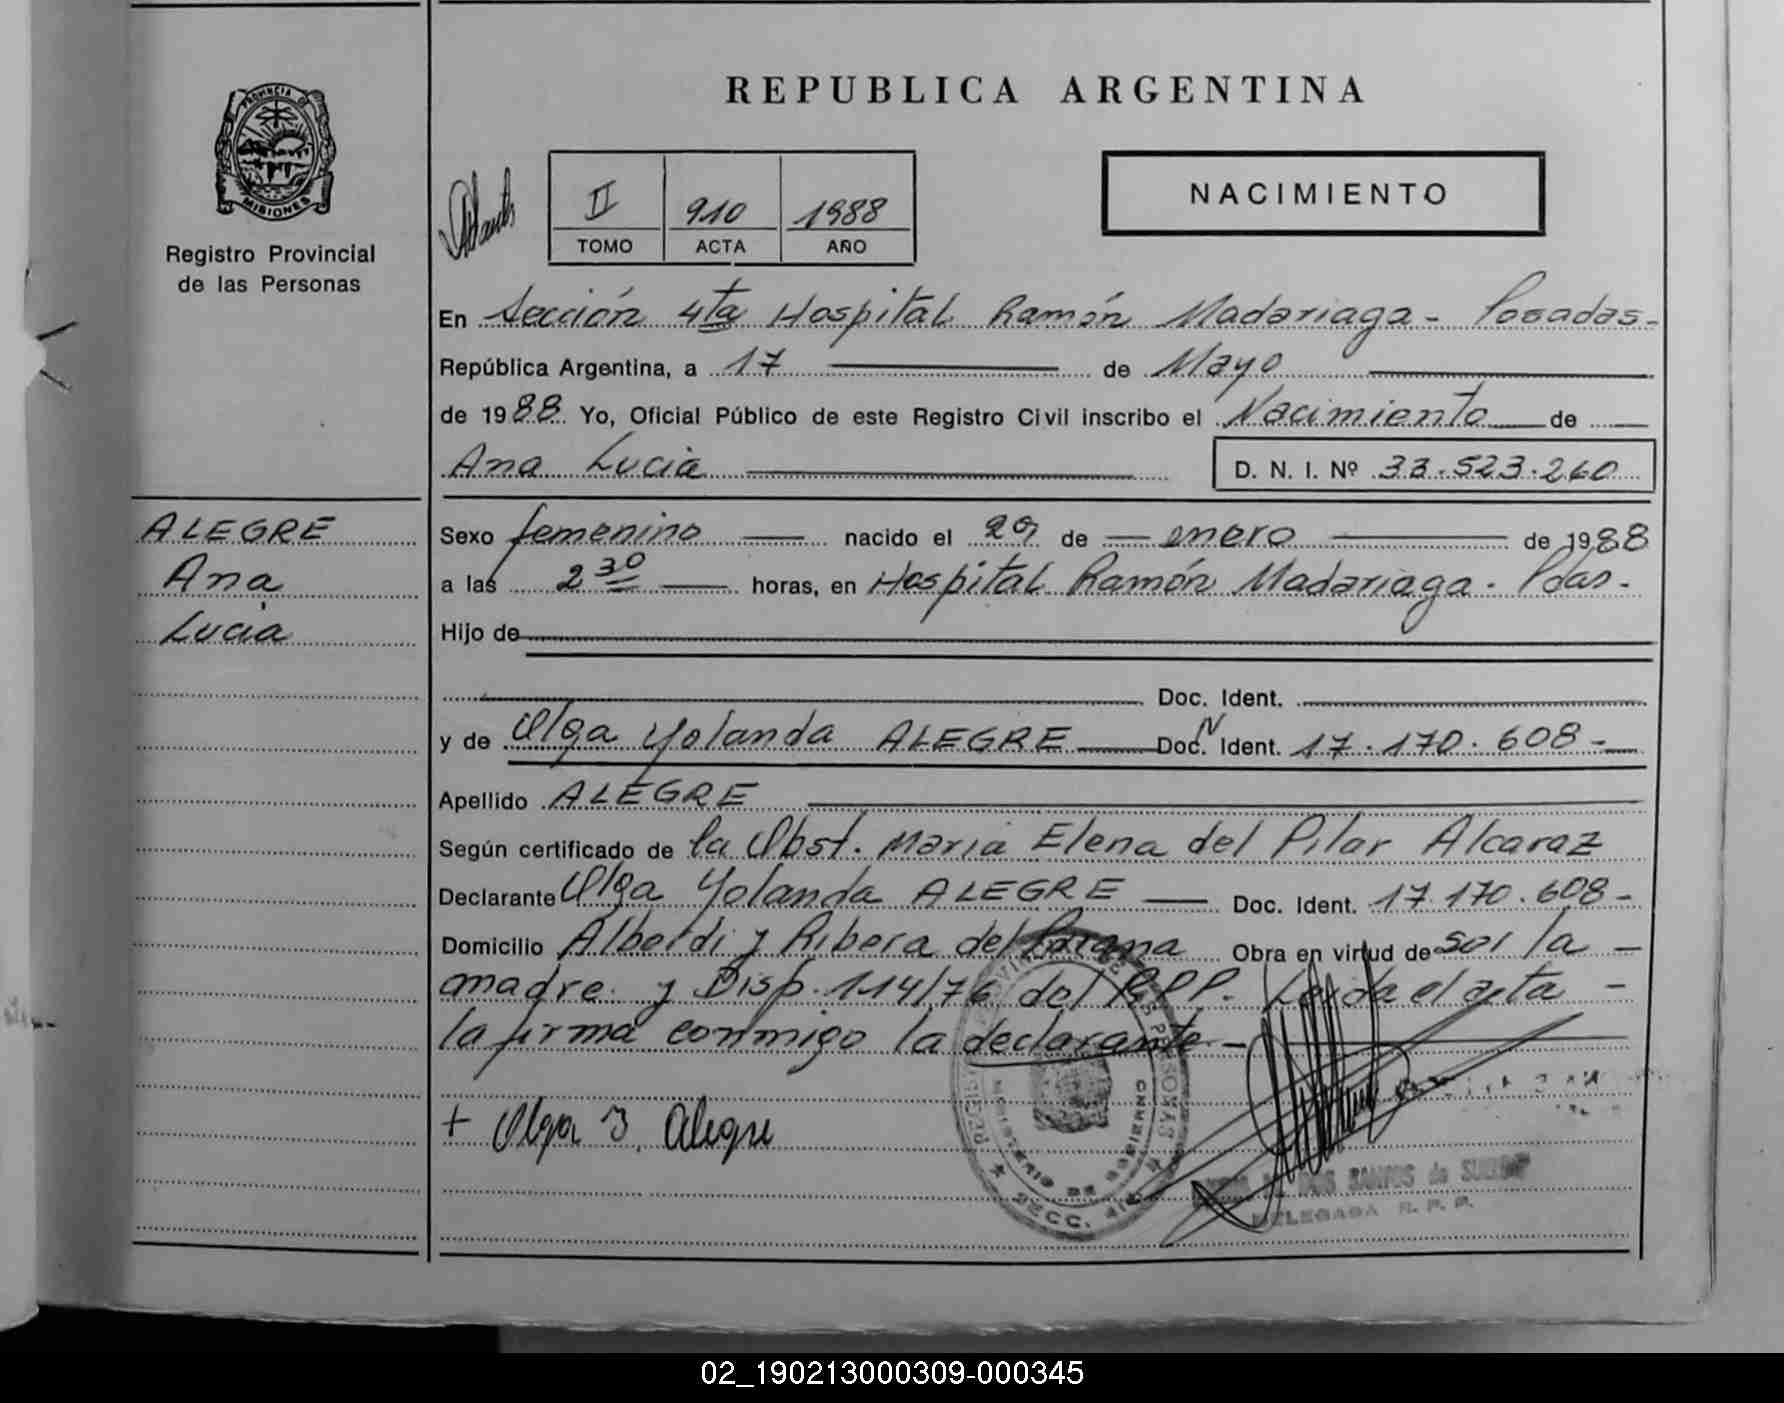 REPUBLICA ARGENTINA
PROVINCIA D
MISIONES
Registro Provincial
de las Personas
II 910 1988
TOMO ACTA AÑO
NACIMIENTO
En Sección 4ta Hospital Ramón Madariaga - Posadas-
República Argentina, a 17 de Mayo
de 1988. Yo, Oficial Público de este Registro Civil inscribo el Nacimiento de
Ana Lucia D. N. I. Nº 33.523.260
ALEGRE
Ana
Lucia
Sexo femenino nacido el 29 de enero de 1988
a las 2 30 horas, en Hospital Ramón Madariaga. Pdas.
Hijo de
Doc. Ident.
y de Olga Yolanda ALEGRE Doc. N Ident. 17.170.608-
Apellido ALEGRE
Según certificado de la Obst. Maria Elena del Pilar Alcaraz
Declarante Olga Yolanda ALEGRE Doc. Ident. 17.170.608-
Domicilio Alberdi y Ribera del Parana Obra en virtud de ser la -
madre y Disp. 114/76 del RPP. Leida el acta -
la firma conmigo la declarante -
+ Olga Y. Alegre
PERSONAS
MINISTERIO DE GOBIERNO
SECC. 4ta
DOS SANTOS de
DELEGADA R. P. P.
02_190213000309-000345